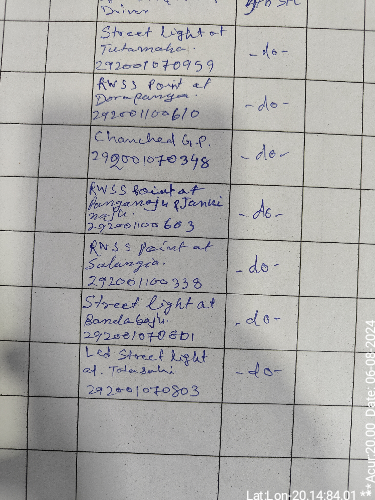 Driver
Street light at
Tutamaha.
292001070959
- do -
RWSS Point at
292001100610
- do -
Chanched G.P.
292001070348
- do -
RWSS Point at
292001100603
- do -
RWSS Point at
Salangia.
292001100338
- do -
Street light at
Bandabaju.
292001070801
- do -
Led Street light
at.
292001070803
- do -
Lat:Lon-20.14:84.01 **Acur:20.00 Date:06-08-2024